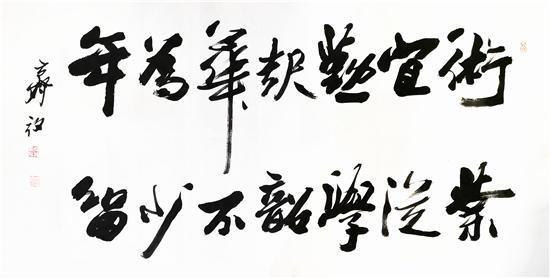 術業
宜從
勤學
起韶
華不
為少
年留